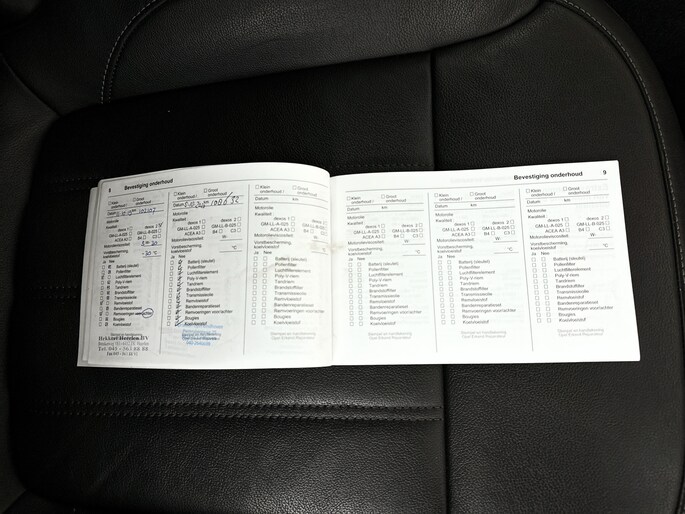 8 Bevestiging onderhoud
Klein onderhoud / Groot onderhoud
Datum km
Motorolie
Kwaliteit: dexos 1 dexos 2
GM-LL-A-025 GM-LL-B-025
ACEA A3 B4 C3
Motorolieviscositeit: 5 W- 30
Vorstbescherming koelvloeistof -30 °C
Ja Nee
Batterij (sleutel)
Pollenfilter
Luchtfilterelement
Poly-V-riem
Tandriem
Brandstoffilter
Transmissieolie
Remvloeistof
Bandenreparatieset
Remvoeringen voor/achter
Bougies
Koelvloeistof
Hekkert-Heerlen BV
Klein onderhoud / Groot onderhoud
Datum km
Motorolie
Kwaliteit: dexos 1 dexos 2
GM-LL-A-025 GM-LL-B-025
ACEA A3 B4 C3
Motorolieviscositeit: W-
Vorstbescherming koelvloeistof °C
Ja Nee
Batterij (sleutel)
Pollenfilter
Luchtfilterelement
Poly-V-riem
Tandriem
Brandstoffilter
Transmissieolie
Remvloeistof
Bandenreparatieset
Remvoeringen voor/achter
Bougies
Koelvloeistof
Klein onderhoud / Groot onderhoud
Datum km
Motorolie
Kwaliteit: dexos 1 dexos 2
GM-LL-A-025 GM-LL-B-025
ACEA A3 B4 C3
Motorolieviscositeit: W-
Vorstbescherming koelvloeistof °C
Ja Nee
Batterij (sleutel)
Pollenfilter
Luchtfilterelement
Poly-V-riem
Tandriem
Brandstoffilter
Transmissieolie
Remvloeistof
Bandenreparatieset
Remvoeringen voor/achter
Bougies
Koelvloeistof
Stempel en handtekening
Opel Erkend Reparateur
Bevestiging onderhoud 9
Klein onderhoud / Groot onderhoud
Datum km
Motorolie
Kwaliteit: dexos 1 dexos 2
GM-LL-A-025 GM-LL-B-025
ACEA A3 B4 C3
Motorolieviscositeit: W-
Vorstbescherming koelvloeistof °C
Ja Nee
Batterij (sleutel)
Pollenfilter
Luchtfilterelement
Poly-V-riem
Tandriem
Brandstoffilter
Transmissieolie
Remvloeistof
Bandenreparatieset
Remvoeringen voor/achter
Bougies
Koelvloeistof
Stempel en handtekening
Opel Erkend Reparateur
Klein onderhoud / Groot onderhoud
Datum km
Motorolie
Kwaliteit: dexos 1 dexos 2
GM-LL-A-025 GM-LL-B-025
ACEA A3 B4 C3
Motorolieviscositeit: W-
Vorstbescherming koelvloeistof °C
Ja Nee
Batterij (sleutel)
Pollenfilter
Luchtfilterelement
Poly-V-riem
Tandriem
Brandstoffilter
Transmissieolie
Remvloeistof
Bandenreparatieset
Remvoeringen voor/achter
Bougies
Koelvloeistof
Stempel en handtekening
Opel Erkend Reparateur
Klein onderhoud / Groot onderhoud
Datum km
Motorolie
Kwaliteit: dexos 1 dexos 2
GM-LL-A-025 GM-LL-B-025
ACEA A3 B4 C3
Motorolieviscositeit: W-
Vorstbescherming koelvloeistof °C
Ja Nee
Batterij (sleutel)
Pollenfilter
Luchtfilterelement
Poly-V-riem
Tandriem
Brandstoffilter
Transmissieolie
Remvloeistof
Bandenreparatieset
Remvoeringen voor/achter
Bougies
Koelvloeistof
Stempel en handtekening
Opel Erkend Reparateur